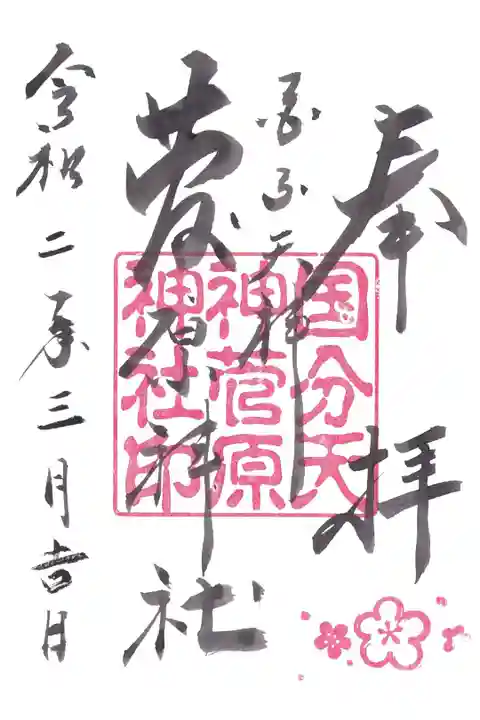 奉拝
天神
菅原神社
令和二年三月吉日
国分天
神菅原
神社印